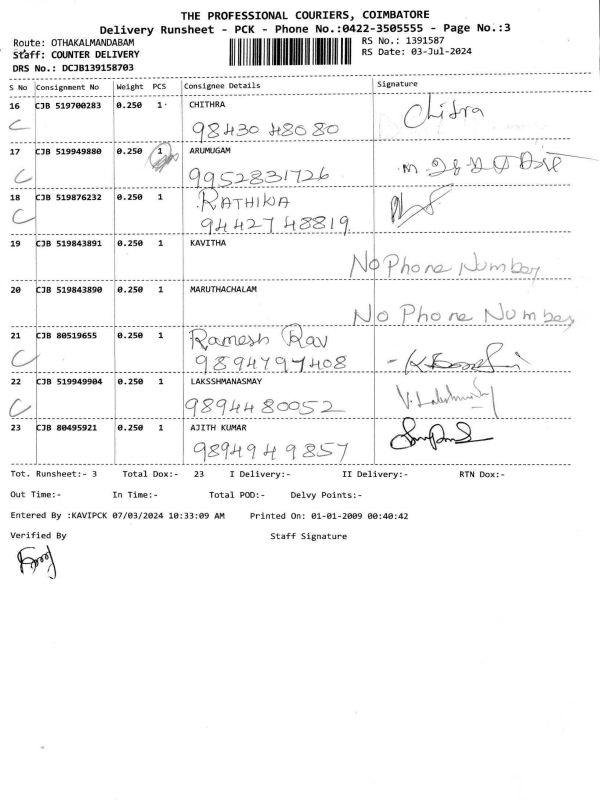 THE PROFESSIONAL COURIERS, COIMBATORE
Delivery Runsheet - PCK - Phone No.:0422-3505555 - Page No.:3
Route: OTHAKALMANDABAM
RS No.: 1391587
Staff: COUNTER DELIVERY
RS Date: 03-Jul-2024
DRS No.: DCJB139158703
S No Consignment No Weight PCS Consignee Details Signature
16 CJB 519700283 0.250 1 CHITHRA Chitra
C 98430 48080
17 CJB 519949880 0.250 1 ARUMUGAM
C 9952831726
18 CJB 519876232 0.250 1 RATHIKA
C 94427 48819
19 CJB 519843891 0.250 1 KAVITHA
No Phone Number
20 CJB 519843890 0.250 1 MARUTHACHALAM
No Phone Number
21 CJB 80519655 0.250 1 Ramesh Rav
C 9894797408
22 CJB 519949904 0.250 1 LAKSSHMANASMAY
C 9894480052
23 CJB 80495921 0.250 1 AJITH KUMAR
9894949857
Tot. Runsheet:- 3 Total Dox:- 23 I Delivery:- II Delivery:- RTN Dox:-
Out Time:- In Time:- Total POD:- Delvy Points:-
Entered By :KAVIPCK 07/03/2024 10:33:09 AM Printed On: 01-01-2009 00:40:42
Verified By Staff Signature